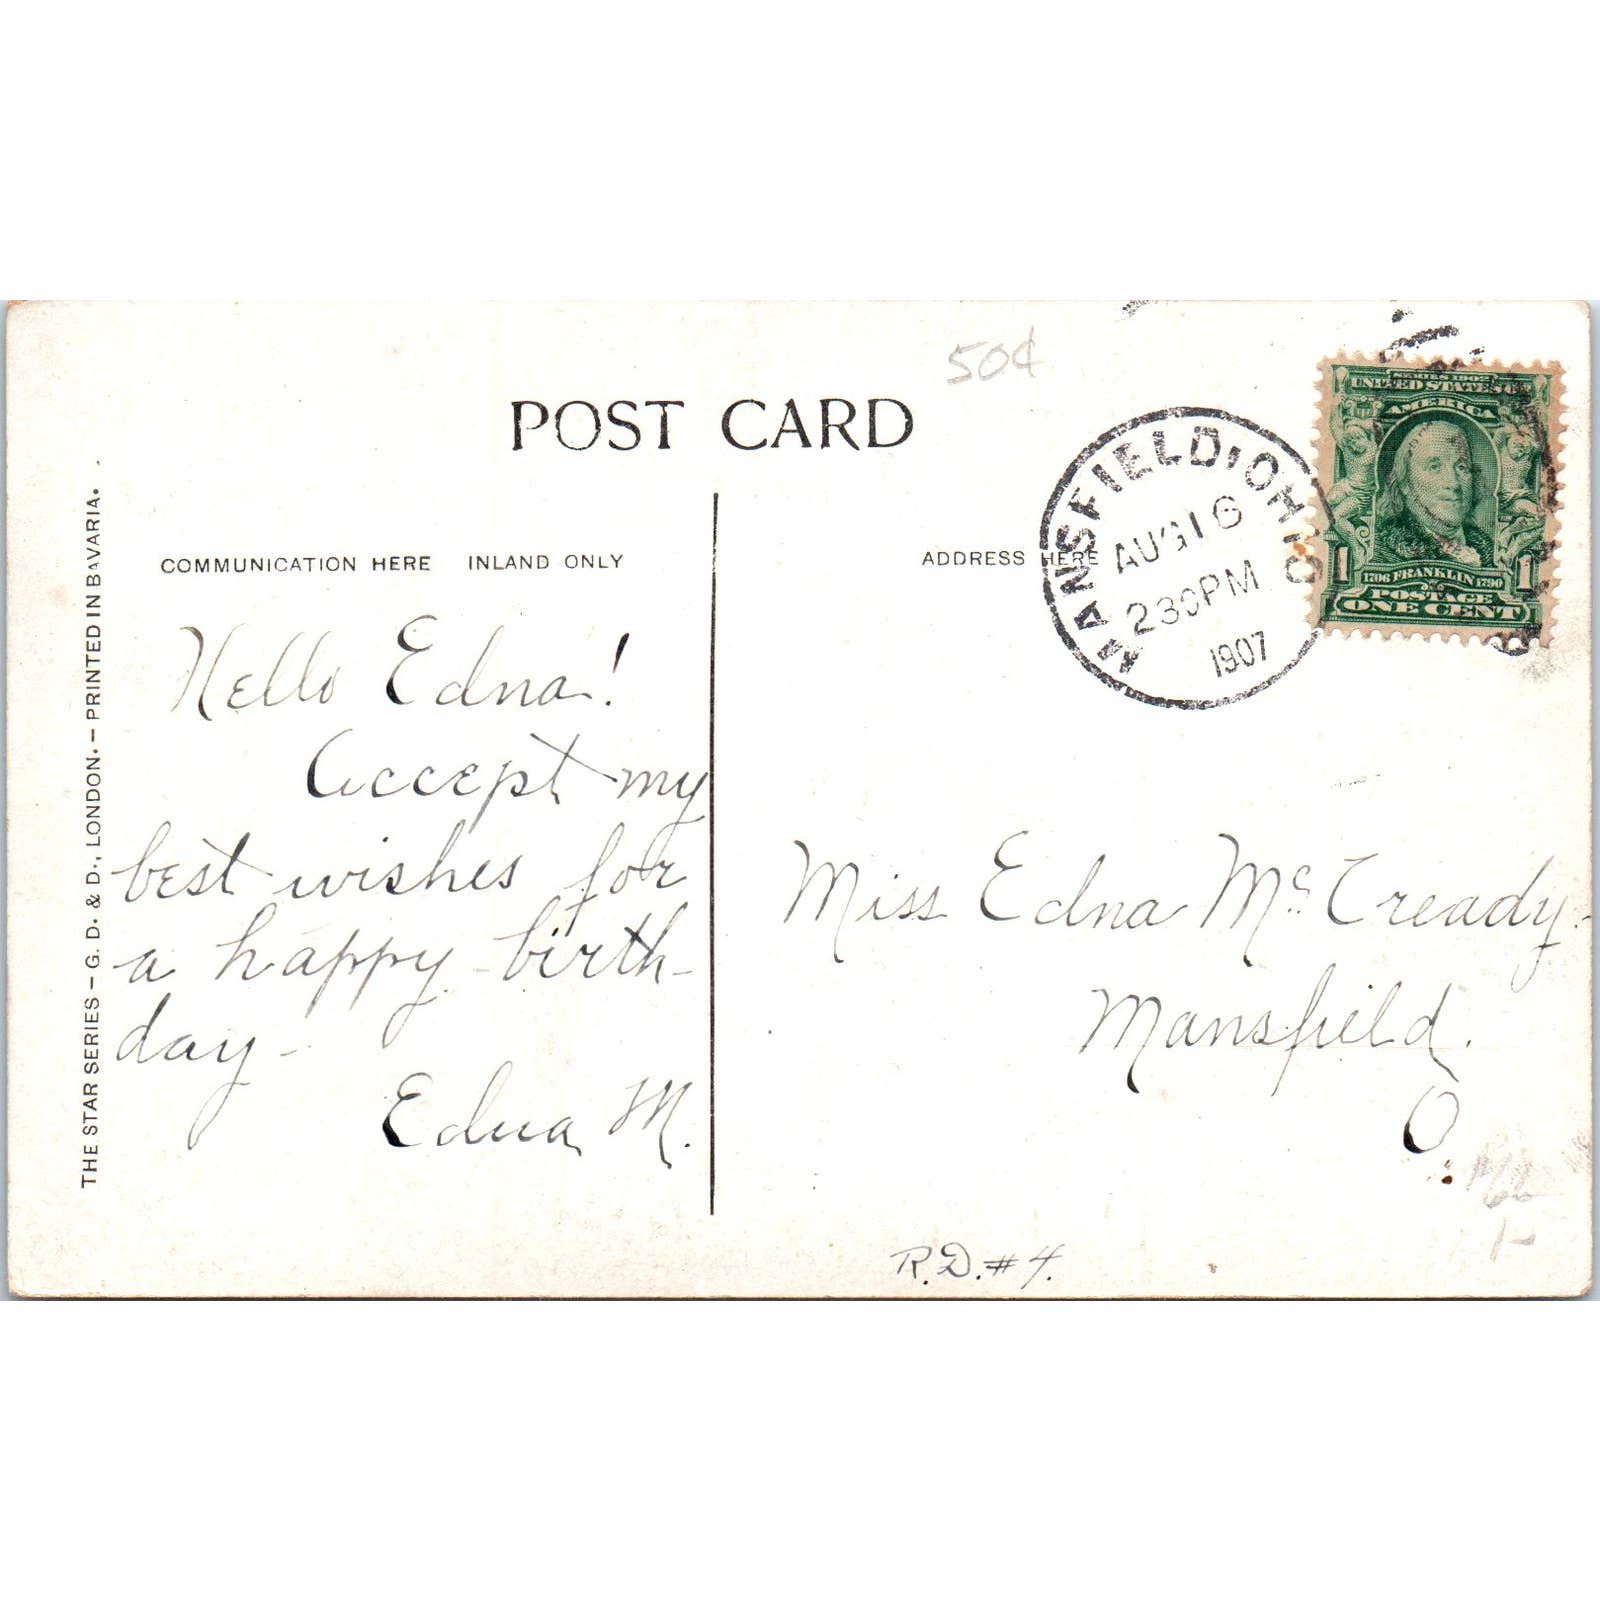 50¢
POST CARD
COMMUNICATION HERE INLAND ONLY
ADDRESS HERE
MANSFIELD, OHIO
AUG 16
230PM
1907
SERIES 1902
UNITED STATES OF
AMERICA
1 1
1706 FRANKLIN 1790
POSTAGE
ONE CENT
THE STAR SERIES – G. D. & D., LONDON. – PRINTED IN BAVARIA.
Hello Edna!
Accept my
best wishes for
a happy birth-
day -
Edna M.
Miss Edna McCready.
Mansfield.
O.
R.D. #4.
1-